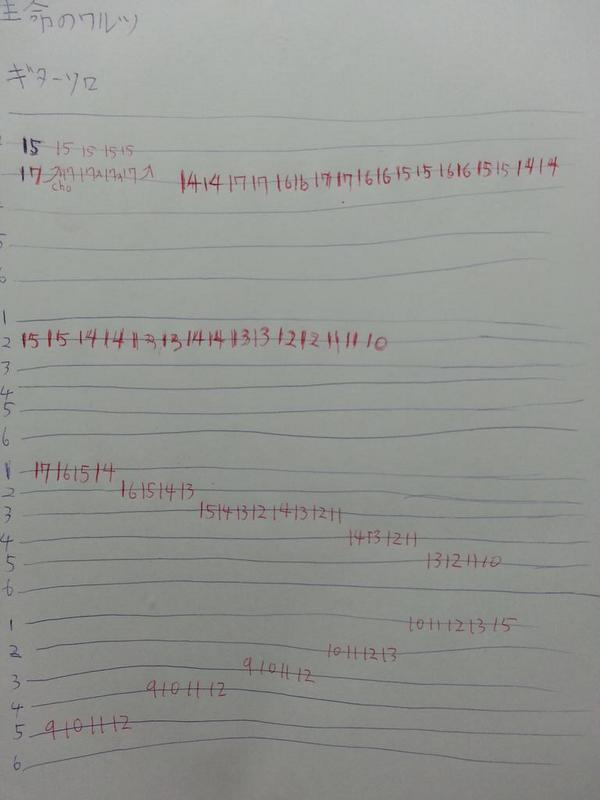 生命のワルツ
ギターソロ
15 15 15 15 15
17 17 17 17 17 14 14 17 17 16 16 17 17 16 16 15 15 16 16 15 15 14 14
cho
5
6
1
2 15 15 14 14 13 13 14 14 13 13 12 12 11 11 10
3
4
5
6
1 17 16 15 14
2 16 15 14 13
3 15 14 13 12 14 13 12 11
4 14 13 12 11
5 13 12 11 10
6
1 10 11 12 13 15
2 10 11 12 13
3 9 10 11 12
4 9 10 11 12
5 9 10 11 12
6